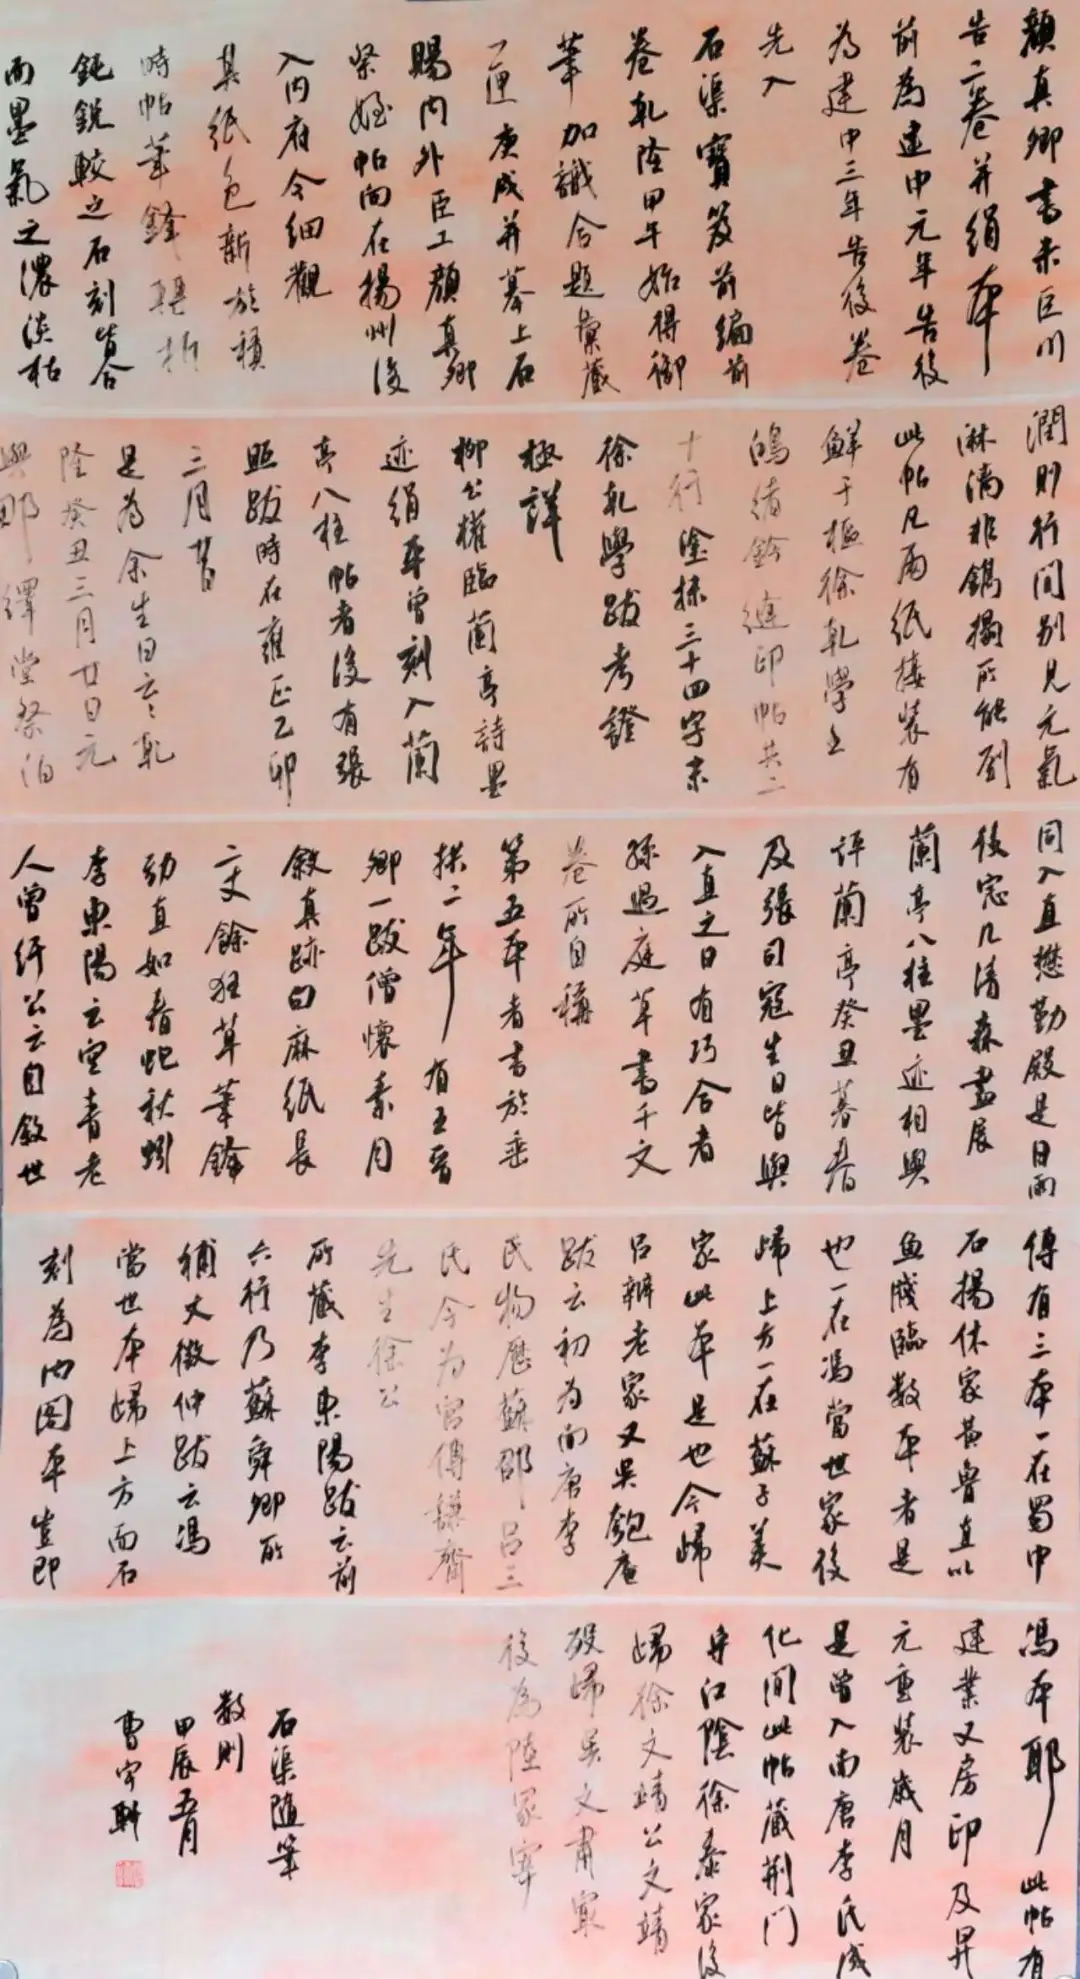 顏真卿書朱巨川
告二卷并絹本
前為建中元年告後
為建中三年告後卷
先入
石渠寶笈前編前
卷乾隆甲午始得御
筆加識合題彙藏
一匣庚戌并摹上石
賜內外臣工顏真卿
祭姪帖向在揚州後
入內府今細觀
其紙色新於積
時帖筆鋒轉折
鈍銳較之石刻皆合
而墨氣之濃淡枯
潤則行間別見元氣
淋漓非鐫搨所能到
此帖凡兩紙接裝有
鮮于樞徐乾學之
鴻緒鈐縫印帖共二
十行塗抹三十四字末
徐乾學跋考證
極詳
柳公權臨蘭亭詩墨
迹絹本曾刻入蘭
亭八柱帖者後有張
照跋時在雍正乙卯
三月廿日
是為余生日云云乾
隆癸丑三月廿日元
與那繹堂祭酒
同入直懋勤殿是日雨
後窓几清森盡展
蘭亭八柱墨迹相與
評蘭亭癸丑暮春
及張司寇生日皆與
入直之日有巧合者
孫過庭草書千文
卷所自稱
第五本者書於垂
拱二年有王晉
卿一跋僧懷素自
敘真跡曰麻紙長
二丈餘狂草筆鋒
勁直如春蛇秋蚓
李東陽云空青老
人曾紆公云自敘世
傳有三本一在蜀中
石揚休家黃魯直以
魚牋臨數本者是
也一在馮當世家後
歸上方一在蘇子美
家此本是也今歸
呂辨老家又吳匏庵
跋云初為南唐李
氏物歷蘇邵呂三
氏今為宮傅謙齋
先生徐公
所藏李東陽跋云前
六行乃蘇舜卿所
補文徵仲跋云馮
當世本歸上方而石
刻為內閣本豈即
馮本耶此帖有
建業文房印及昇
元重裝歲月
是曾入南唐李氏成
化間此帖藏荆門
守江陰徐泰家後
歸徐文靖公文靖
歿歸吳文肅家
後為陸冢宰
石渠隨筆
數則
甲辰五月